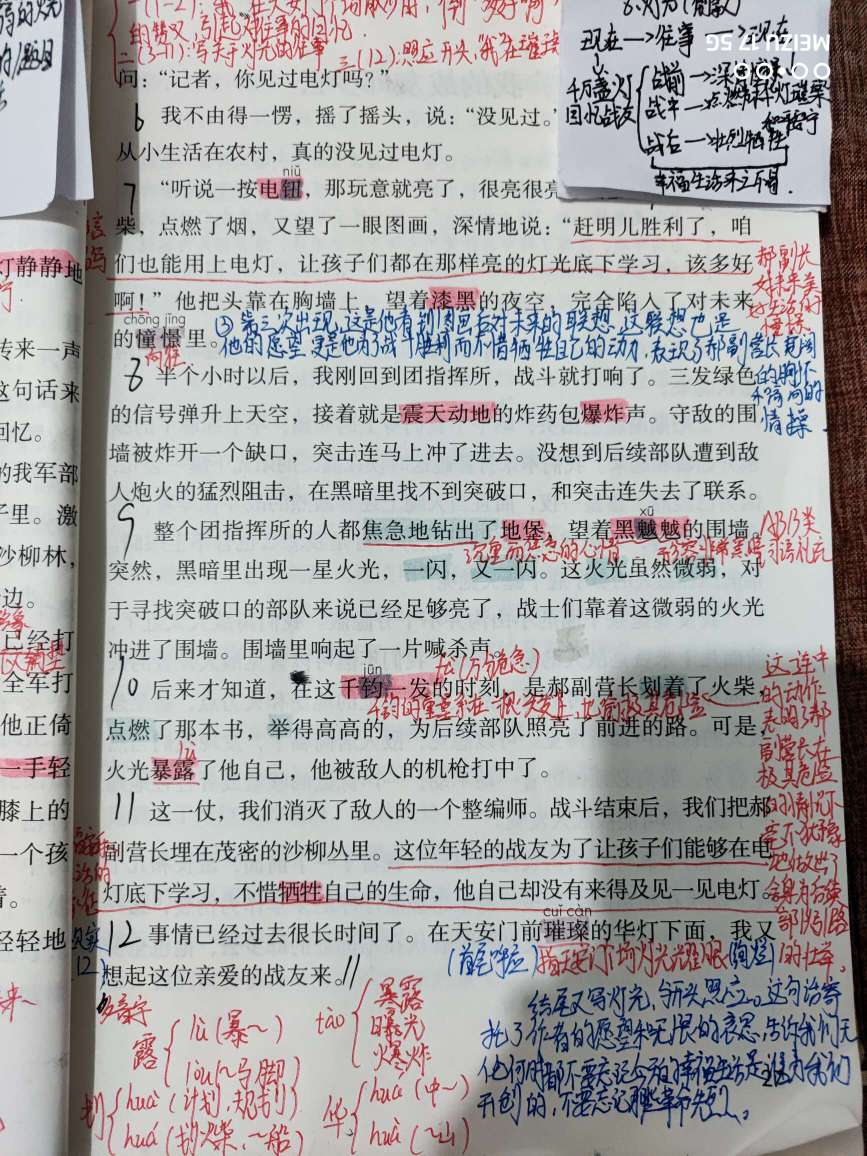 一(1-2):
的赞叹,引起对往事的回忆
二(3-11):写关于灯光的往事 三(12):照应开头,
现在→往事→现在
千万盏灯
回忆战友
战前→
战中→点燃
战后→壮烈牺牲
幸福生活来之不易.
MEIZU 17 5G
问:“记者,你见过电灯吗?”
6 我不由得一愣,摇了摇头,说:“没见过。”
从小生活在农村,真的没见过电灯。
niǔ
7 “听说一按电钮,那玩意就亮了,很亮很亮
柴,点燃了烟,又望了一眼图画,深情地说:“赶明儿胜利了,咱
们也能用上电灯,让孩子们都在那样亮的灯光底下学习,该多好
啊!”他把头靠在胸墙上,望着漆黑的夜空,完全陷入了对未来
chōng jǐng
的憧憬里。
向往
郝副长
对未来美
好生活的
憧憬
③第三次出现,这是他看到图画后对未来的联想,这联想也是
他的愿望,更是他为了战斗胜利而不惜牺牲自己的动力,表现了郝副营长宽阔
的胸怀
和高尚的
情操.
8 半个小时以后,我刚回到团指挥所,战斗就打响了。三发绿色
的信号弹升上天空,接着就是震天动地的炸药包爆炸声。守敌的围
墙被炸开一个缺口,突击连马上冲了进去。没想到后续部队遭到敌
人炮火的猛烈阻击,在黑暗里找不到突破口,和突击连失去了联系。
xū
9 整个团指挥所的人都焦急地钻出了地堡,望着黑魆魆的围墙。
沉重而焦急的心情 形容非常黑暗
ABB类
词语
突然,黑暗里出现一星火光,一闪,又一闪。这火光虽然微弱,对
于寻找突破口的部队来说已经足够亮了,战士们靠着这微弱的火光
冲进了围墙。围墙里响起了一片喊杀声。
jūn
(万分危急)
10 后来才知道,在这千钧一发的时刻,是郝副营长划着了火柴,
千钧的重量系在一根头发上,比喻极其危险
点燃了那本书,举得高高的,为后续部队照亮了前进的路。可是,
lù
火光暴露了他自己,他被敌人的机枪打中了。
这连串
的动作
表明了郝
副营长在
极其危险
的情况下
毫不犹豫
地做出了
舍身为后续
部队引路
的壮举。
11 这一仗,我们消灭了敌人的一个整编师。战斗结束后,我们把郝
副营长埋在茂密的沙柳丛里。这位年轻的战友为了让孩子们能够在电
灯底下学习,不惜牺牲自己的生命,他自己却没有来得及见一见电灯。
cuǐ càn
12 事情已经过去很长时间了。在天安门前璀璨的华灯下面,我又
(首尾呼应) 指天安门广场灯光耀眼(绚烂)
想起这位亲爱的战友来。
多音字
露{lù(暴~)
lòu(~马脚)
bào{暴露
曝光
爆炸
划{huà(计划,规划)
huá(划火柴,~船)
华{huá(中~)
huà(~山)
结尾又写灯光,与开头照应。这句话寄
托了作者的愿望和无限的哀思,告诉我们无
论何时都不要忘记今天的幸福生活是谁为我们
开创的,不要忘记那些革命先烈。
灯静静地
传来一声
这句话来
回忆。
的我军部
子里。激
沙柳林,
边。
已经打
全军打
他正倚
一手轻
膝上的
一个孩
着。
轻轻地